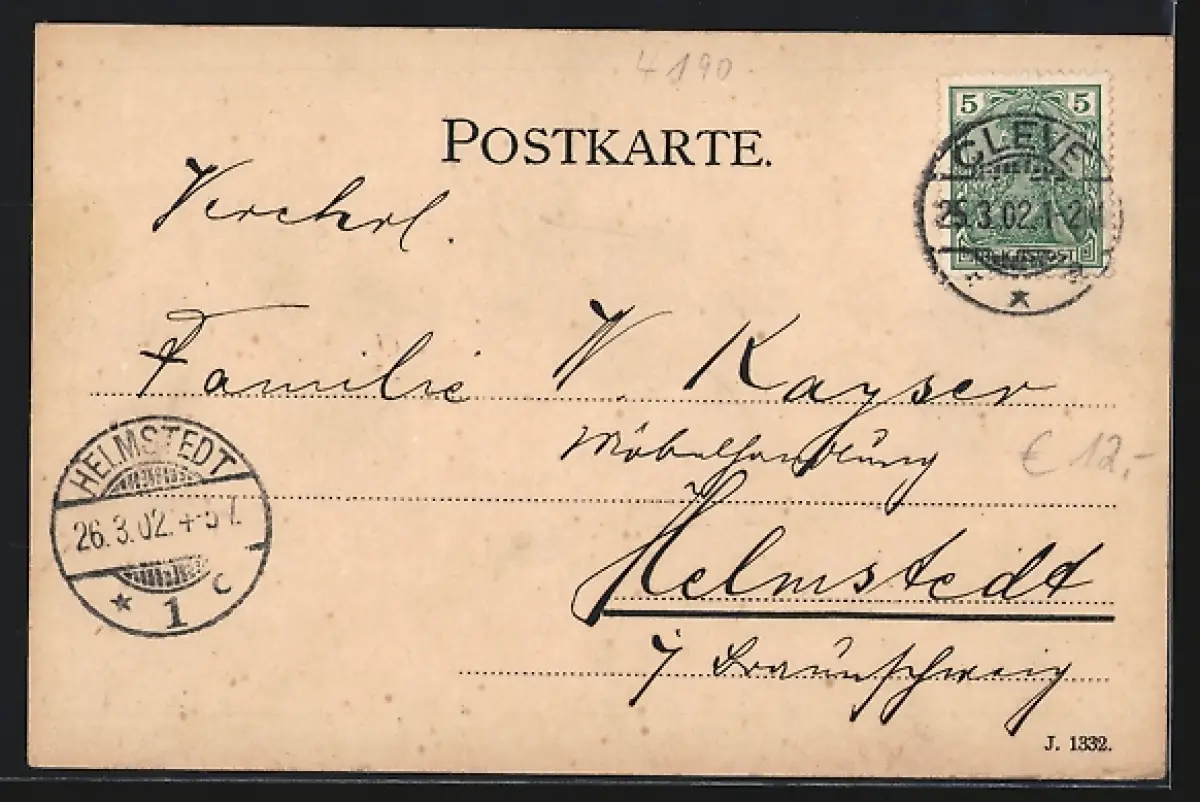 4190
POSTKARTE.
5 5
CLEVE
25.3.02. 1-2 N
REICHSPOST
Verehrl.
Familie W. Kayser
Möbelhandlung
€ 12,-
HELMSTEDT
26.3.02. 4-5
* 1 c
Helmstedt
i/ Braunschweig
J. 1332.